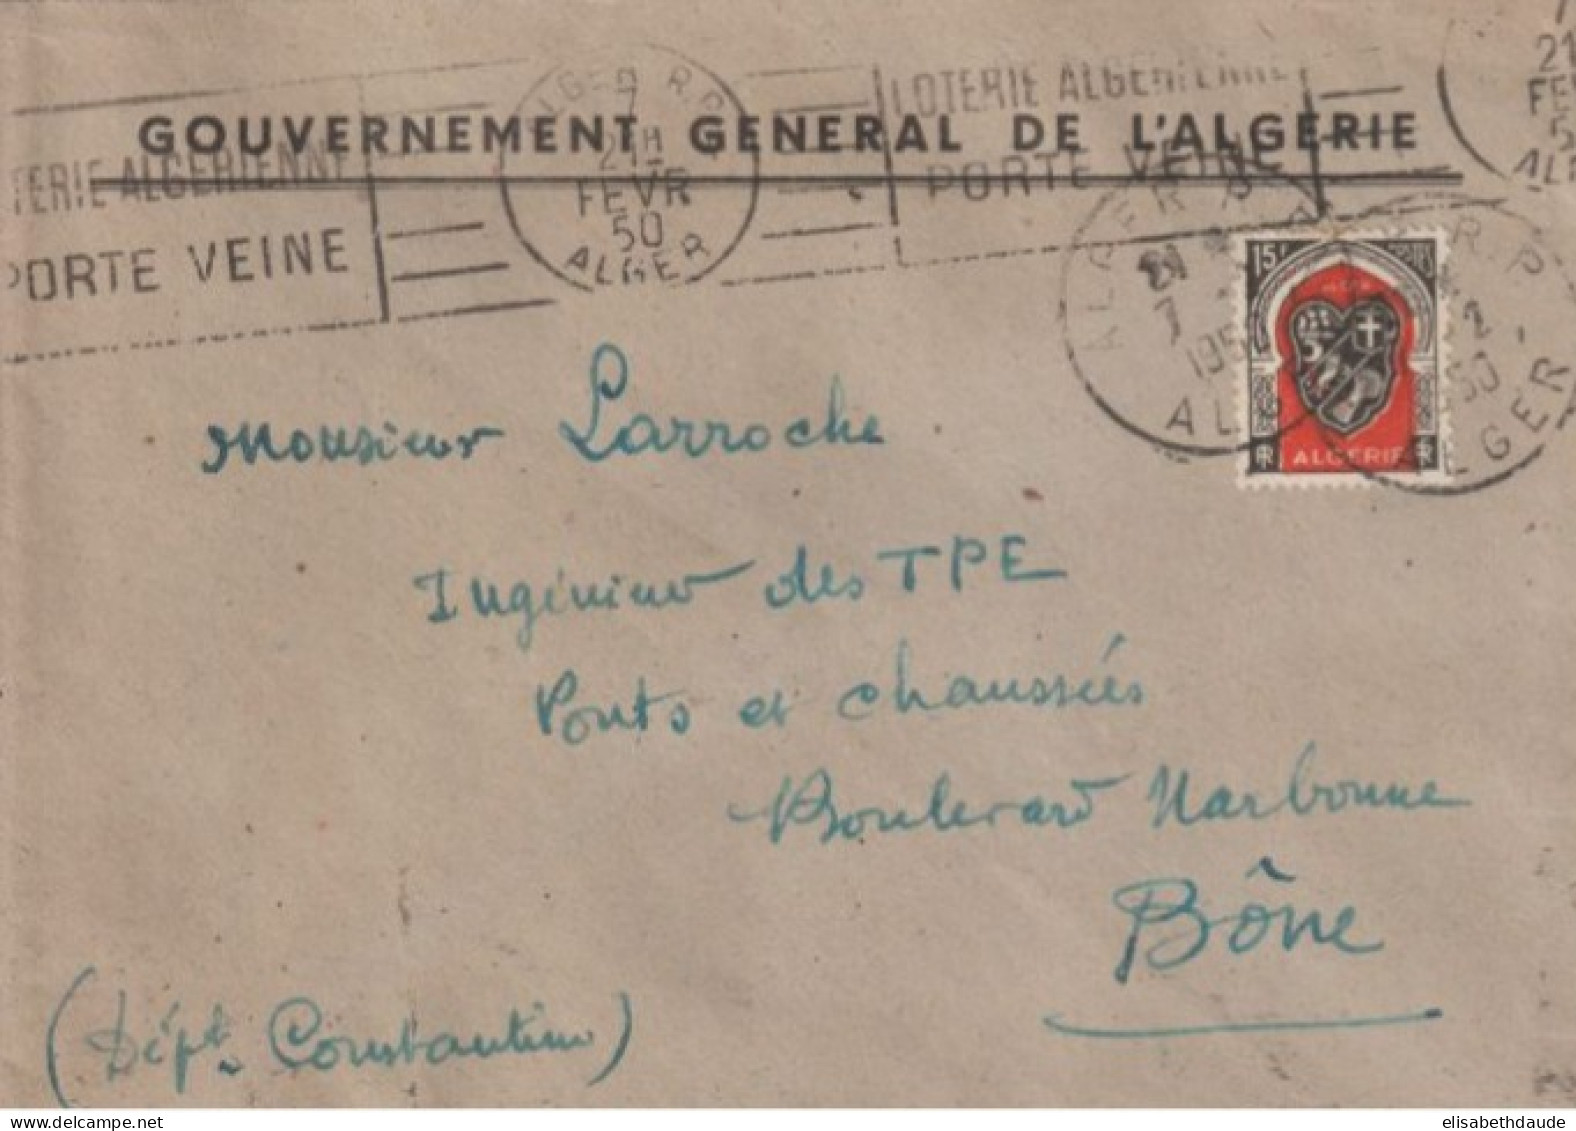 GOUVERNEMENT GENERAL DE L'ALGERIE
LOTERIE ALGERIENNE
PORTE VEINE
TERIE ALGERIENNE
PORTE VEINE
ALGER R.P.
7
21H
FEVR
50
ALGER
21
FEV
5
ALGER R.P
21
7
195
AL
R.P
2
50
ALGER
15F POSTES
RF ALGERIE RF
Monsieur Larroche
Ingénieur des TPE
Ponts et chaussées
Boulevard Narbonne
Bône
(Dépt. Constantine)
elisabethdaude